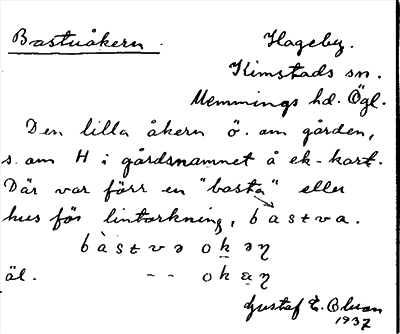 Bastuåkern.
Hageby.
Kimstads sn.
Memmings hd. Ögl.
Den lilla åkern ö. om gården,
s. om H i gårdsnamnet å ek-kart.
Där var förr en "basta" eller
hus för lintorkning, bastva.
bàstvə okəɳ
äl. - - okaɳ
Gustaf E. Olson
1937